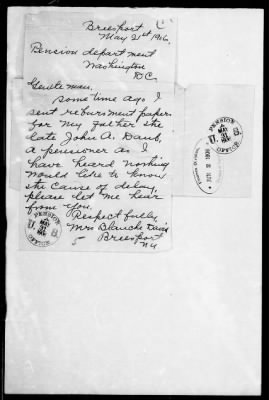 Breesport
May 21st 1906.
Pension department
Washington
D.C.
Gentle man.
some time ago I
sent reburs ment papers
for my father the
late John A. Daub,
a pensioner as I
have heard nothing
would like to know
the cause of delay,
please let me hear
from you.
Respect fully,
Mrs Blanch
Breesport
NY
5
PENSION
U.S.
OFFICE
PENSION
U.S.